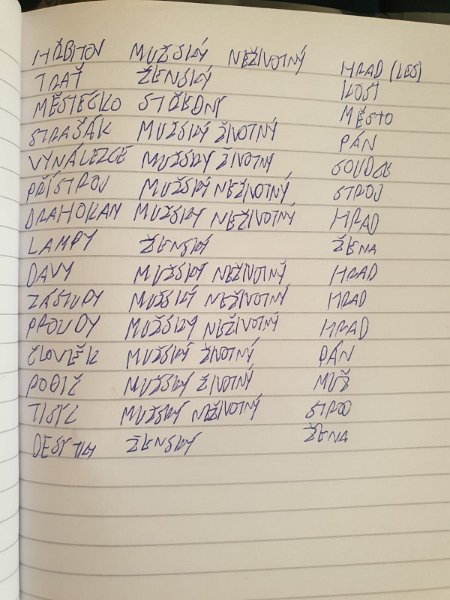 HŘBITOV MUŽSKÝ NEŽIVOTNÝ HRAD (LES)
TRAŤ ŽENSKÝ KOST
MĚSTEČKO STŘEDNÍ MĚSTO
STRAŠÁK MUŽSKÝ ŽIVOTNÝ PÁN
VYNÁLEZCE MUŽSKÝ ŽIVOTNÝ SOUDCE
PŘÍSTROJ MUŽSKÝ NEŽIVOTNÝ STROJ
DRAHOKAM MUŽSKÝ NEŽIVOTNÝ HRAD
LAMPY ŽENSKÝ ŽENA
DAVY MUŽSKÝ NEŽIVOTNÝ HRAD
ZÁSTUDY MUŽSKÝ NEŽIVOTNÝ HRAD
PROUDY MUŽSKÝ NEŽIVOTNÝ HRAD
ČLOVĚK MUŽSKÝ ŽIVOTNÝ PÁN
MUŽSKÝ ŽIVOTNÝ MUŽ
MUŽSKÝ NEŽIVOTNÝ
ŽENSKÝ ŽENA